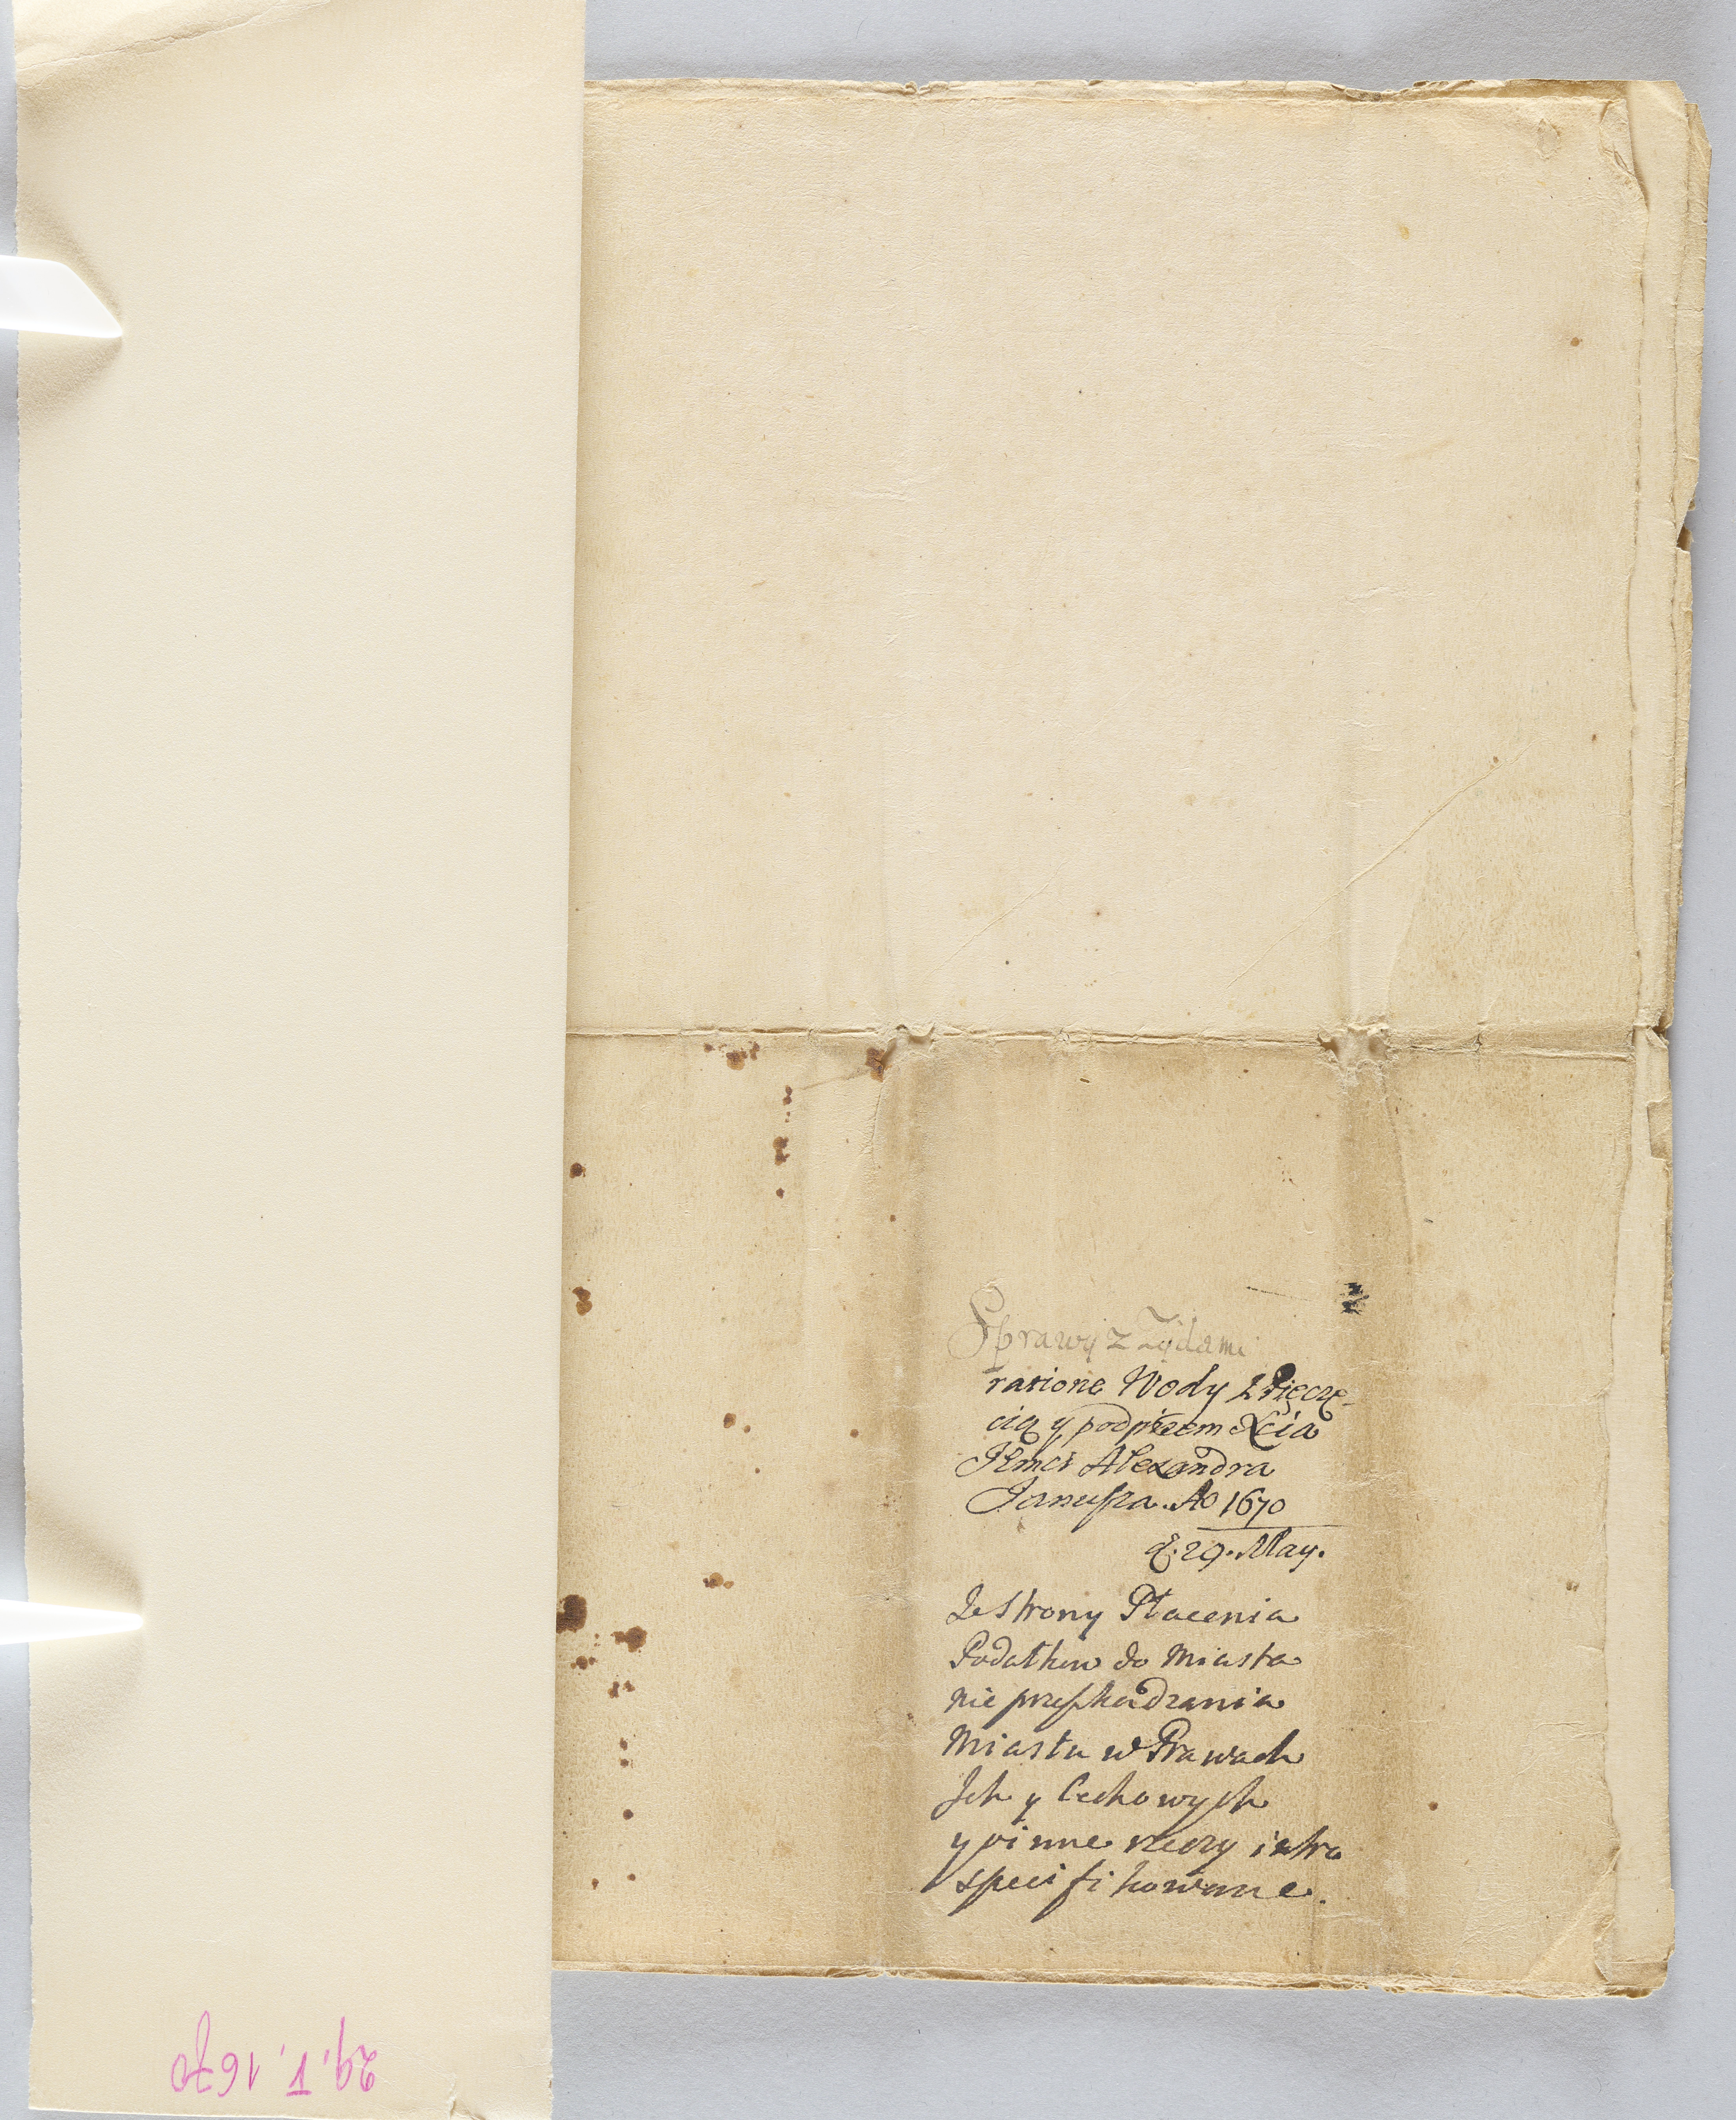 Sprawy z Zydami
ratione Wody z Pięczę-
cią y podpisem Xcia
JEmci Alexandra
Janusza. Ao 1670
d. 29. May.
Ze strony Płacenia
Podatkow do Miasta
nie przeszkadzania
Miastu w Prawach
Ich y Cechowych
y inne rzeczy intra
specifikowane.
29.1.1670